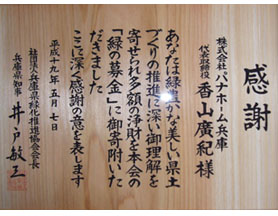 感謝
株式会社パナホーム兵庫
代表取締役 香山廣紀様
あなたは緑豊かな美しい県土
づくりの推進に深い御理解を
寄せられ多額の浄財を本会の
「緑の募金」に御寄附いた
だきました
ここに深く感謝の意を表します
平成十九年五月七日
社団法人兵庫県緑化推進協会会長
兵庫県知事 井戸敏三